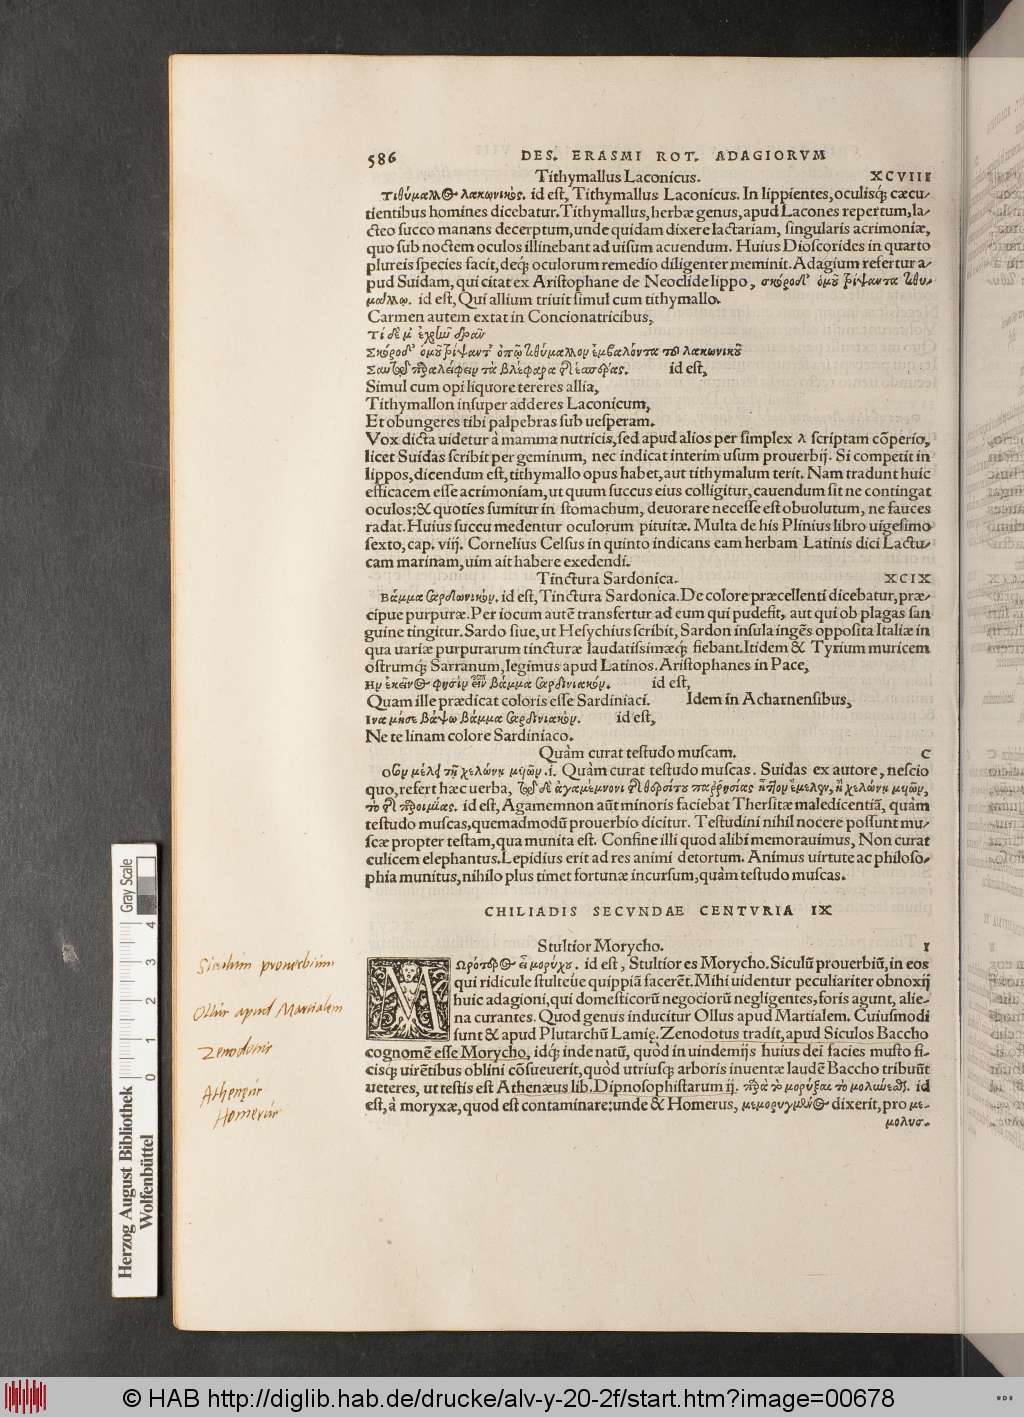 586 DES. ERASMI ROT. ADAGIORVM
Tithymallus Laconicus. XCVIII
Τιθύμαλλος λακωνικός. id est, Tithymallus Laconicus. In lippientes, oculisq́; cæcu-
tientibus homines dicebatur. Tithymallus, herbæ genus, apud Lacones repertum, la-
cteo succo manans decerptum, unde quidam dixere lactariam, singularis acrimoniæ,
quo sub noctem oculos illinebant ad uisum acuendum. Huius Dioscorides in quarto
plureis species facit, deq́; oculorum remedio diligenter meminit. Adagium refertur a-
pud Suidam, qui citat ex Aristophane de Neoclide lippo, σκόροδ' ὁμοῦ τρίψαντα τιθυ-
μάλλῳ. id est, Qui allium triuit simul cum tithymallo.
Carmen autem extat in Concionatricibus,
Τί δέ μ' ἐχρῆν δρᾶν
Σκόροδ' ὁμοῦ τρίψαντ' ὀπῷ τιθύμαλλον ἐμβαλόντα τοῦ λακωνικοῦ
Σαυτοῦ παραλείφειν τὰ βλέφαρα τῆς ἑσπέρας. id est,
Simul cum opi liquore tereres allia,
Tithymallon insuper adderes Laconicum,
Et obungeres tibi palpebras sub uesperam.
Vox dicta uidetur à mamma nutricis, sed apud alios per simplex λ scriptam cõperio,
licet Suidas scribit per geminum, nec indicat interim usum prouerbij. Si competit in
lippos, dicendum est, tithymallo opus habet, aut tithymalum terit. Nam tradunt huic
efficacem esse acrimoniam, ut quum succus eius colligitur, cauendum sit ne contingat
oculos: & quoties sumitur in stomachum, deuorare necesse est obuolutum, ne fauces
radat. Huius succu medentur oculorum pituitæ. Multa de his Plinius libro uigesimo
sexto, cap. viij. Cornelius Celsus in quinto indicans eam herbam Latinis dici Lactu-
cam marinam, uim ait habere exedendi.
Tinctura Sardonica. XCIX
Βάμμα Σαρδωνικόν. id est, Tinctura Sardonica. De colore præcellenti dicebatur, præ-
cipue purpuræ. Per iocum autẽ transfertur ad eum qui pudefit, aut qui ob plagas san
guine tingitur. Sardo siue, ut Hesychius scribit, Sardon insula ingẽs opposita Italiæ in
qua uariæ purpurarum tincturæ laudatissimæq́; fiebant. Itidem & Tyrium muricem
ostrumq́; Sarranum, legimus apud Latinos. Aristophanes in Pace,
Ην ἐκεῖνος φησὶν εἶναι βάμμα Σαρδινιακόν. id est,
Quam ille prædicat coloris esse Sardiniaci. Idem in Acharnensibus,
Ινα μήσε βάψω βάμμα Σαρδινιακόν. id est,
Ne te linam colore Sardiniaco.
Quàm curat testudo muscam. C
Οσον μέλει τῇ χελώνῃ μυῶν. i. Quàm curat testudo muscas. Suidas ex autore, nescio
quo, refert hæc uerba, τῷ δὲ ἀγαμέμνονι τῆς θερσίτου παρρησίας ἧττον ἔμελεν, ἢ χελώνῃ μυῶν,
τὸ τῆς παροιμίας. id est, Agamemnon aũt minoris faciebat Thersitæ maledicentiã, quàm
testudo muscas, quemadmodũ prouerbio dicitur. Testudini nihil nocere possunt mu-
scæ propter testam, qua munita est. Confine illi quod alibi memorauimus, Non curat
culicem elephantus. Lepidius erit ad res animi detortum. Animus uirtute ac philoso-
phia munitus, nihilo plus timet fortunæ incursum, quàm testudo muscas.
CHILIADIS SECVNDAE CENTVRIA IX
Stultior Morycho. I
ΜΩρότερος εἶ μορύχου. id est, Stultior es Morycho. Siculũ prouerbiũ, in eos
qui ridicule stulteúe quippiã facerẽt. Mihi uidentur peculiariter obnoxij
huic adagioni, qui domesticorũ negociorũ negligentes, foris agunt, alie-
na curantes. Quod genus inducitur Ollus apud Martialem. Cuiusmodi
sunt & apud Plutarchũ Lamię. Zenodotus tradit, apud Siculos Baccho
cognomẽ esse Morycho, idq́; inde natũ, quòd in uindemijs huius dei facies musto fi-
cisq́; uirẽtibus oblini cõsueuerit, quòd utriusq́; arboris inuentæ laudẽ Baccho tribuũt
ueteres, ut testis est Athenæus lib. Dipnosophistarum ij. παρὰ τὸ μορύξαι τὸ μολῦναι. id
est, à moryxæ, quod est contaminare: unde & Homerus, μεμορυγμένος dixerit, pro με-
μολυσ-
Siculum prouerbium
Ollus apud Martialem
Zenodotus
Athenęus
Homerus
Gray Scale
0 1 2 3 4
Herzog August Bibliothek
Wolfenbüttel
© HAB http://diglib.hab.de/drucke/alv-y-20-2f/start.htm?image=00678